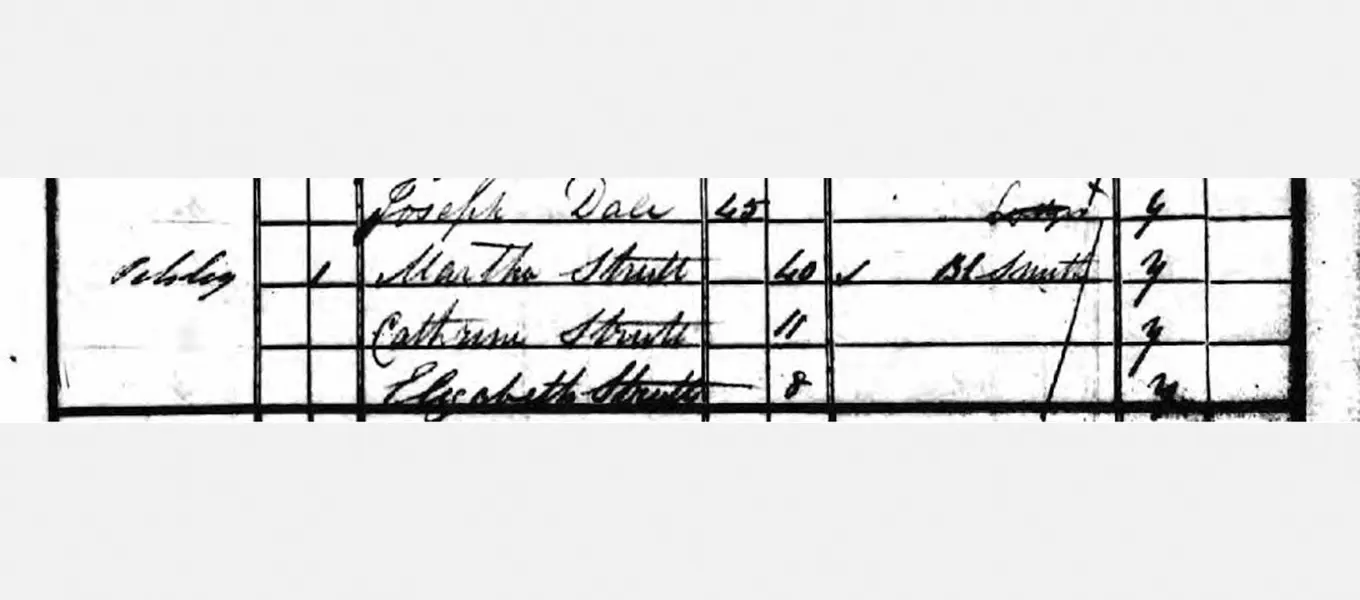 Joseph Dale 45 y
1 Martha Strutt 40 Bl Smith y
Cathrine Strutt 11 y
Elizabeth Strutt 8 y